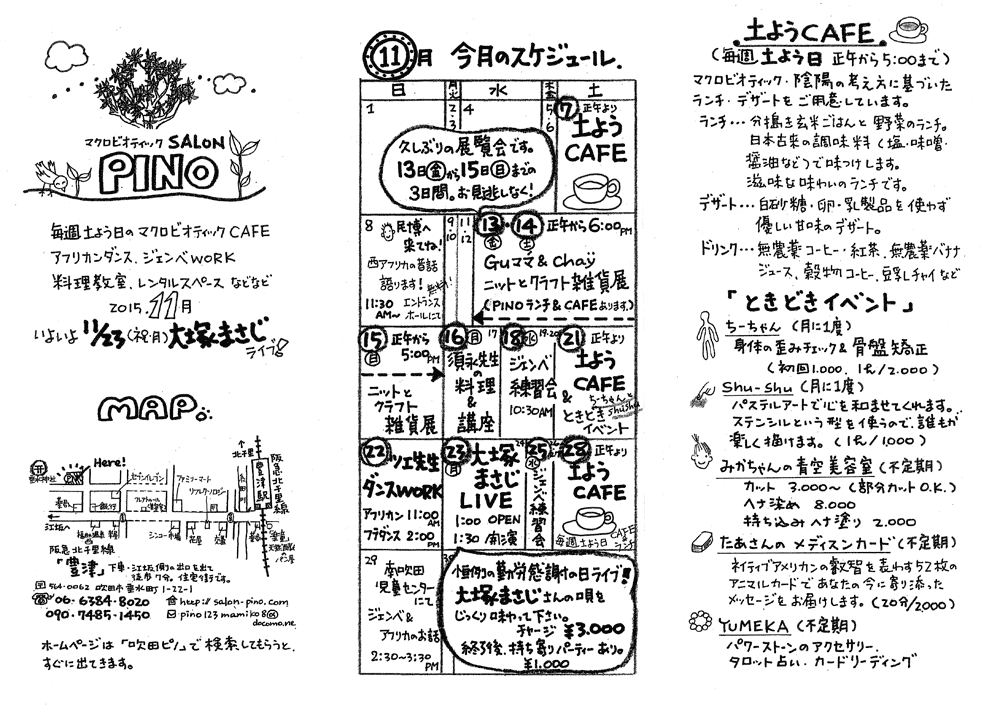 マクロビオティック SALON
PINO
毎週土よう日のマクロビオティック CAFE
アフリカンダンス、ジェンベWORK
料理教室、レンタルスペース などなど
2015.11月
いよいよ 11/23(祝・月) 大塚まさじ
ライブ!
MAP
Here!
セブンイレブン
ファミリーマート
リフレクソロジー
豊津駅
阪急北千里線
北千里
江坂へ
阪急北千里線
「豊津」下車・江坂側の出口を出て
徒歩7分。住宅街です。
〒564-0062 吹田市垂水町1-22-1
☎06・6384・8020
http://salon-pino.com
090・7485・1450
pino123mamiko8@
docomo.ne.
ホームページは「吹田ピノ」で検索してもらうと、
すぐに出てきます。
11月 今月のスケジュール.
日 月火 水 木金 土
1
2・3
4
5・6
7 正午より
土よう
CAFE
久しぶりの展覧会です。
13日金から15日日までの
3日間。お見逃しなく!
8 民博へ
来てね!
西アフリカの昔話
語ります!
無料!
11:30
AM〜
エントランス
ホールにて
9・10
11・12
13金 14土 正午から6:00PM
Guママ&Chaÿ
ニットとクラフト雑貨展
(PINOランチ&CAFEあります。)
15日 正午から
5:00PM
ニットと
クラフト
雑貨展
16月
17
須永先生
の
料理
&
講座
18水
19・20
ジェンベ
練習会
10:30AM
21 正午より
土よう
CAFE
&
ちーちゃんと
shushu
ときどき
イベント
22 ツエ先生
ダンスWORK
アフリカン 11:00AM
フラダンス 2:00PM
23月 大塚
まさじ
LIVE
1:00 OPEN
1:30 開演
25水
ジェンベ練習会
28 正午より
土よう
CAFE
毎週土よう日
CAFE
ランチ
29 南吹田
児童センター
にて
ジェンベ&
アフリカのお話
2:30〜3:30PM
恒例の勤労感謝の日ライブ!
大塚まさじさんの唄を
じっくり味わって下さい。
チャージ ¥3,000
終了後、持ち寄りパーティーあり。
¥1,000
土ようCAFE.
(毎週土よう日 正午から5:00まで)
マクロビオティック・陰陽の考え方に基づいた
ランチ・デザートをご用意しています。
ランチ…分搗き玄米ごはんと野菜のランチ。
日本古来の調味料(塩・味噌・
醤油など)で味つけします。
滋味な味わいのランチです。
デザート…白砂糖・卵・乳製品を使わず
優しい甘味のデザート。
ドリンク…無農薬コーヒー・紅茶、無農薬バナナ
ジュース、穀物コーヒー、豆乳チャイなど
「ときどきイベント」
ちーちゃん(月に1度)
身体の歪みチェック&骨盤矯正
(初回1.000、1h/2.000)
Shu-shu(月に1度)
パステルアートで心を和ませてくれます。
ステンシルという型を使うので、誰もが
楽しく描けます。(1h/1,000)
みかちゃんの青空美容室(不定期)
カット 3.000〜(部分カットO.K.)
ヘナ染め 8.000
持ち込みヘナ塗り 2.000
たあさんのメディスンカード(不定期)
ネイティブアメリカンの叡智を表わす52枚の
アニマルカードであなたの今に寄り添った
メッセージをお届けします。(20分/2000)
YUMEKA(不定期)
パワーストーンのアクセサリー.
タロット占い・カードリーディング